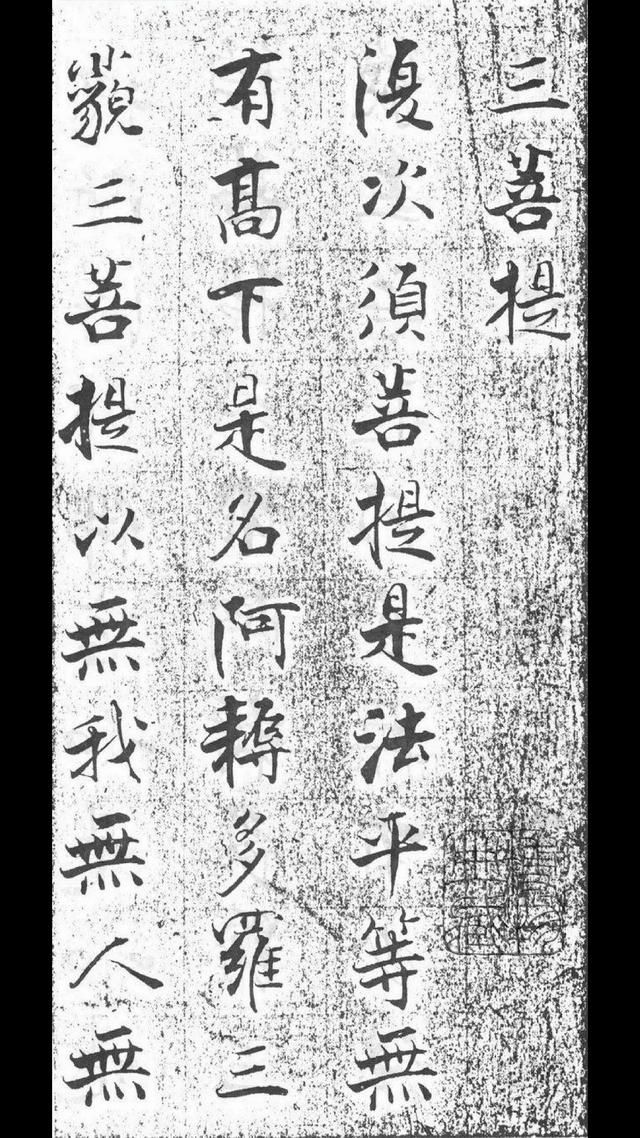 三菩提
復次須菩提是法平等無
有高下是名阿耨多羅三
藐三菩提以無我無人無